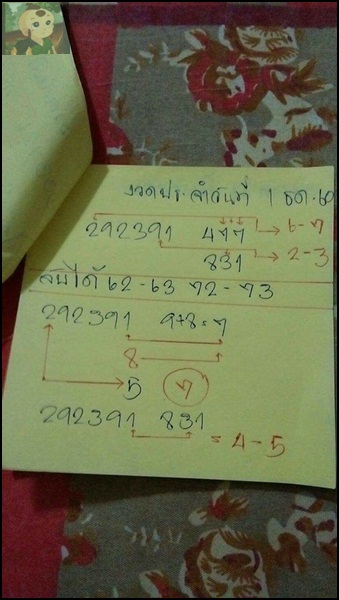 งวดประจำวันที่ 1 ธค.60
292391 477 → 6-7
831 → 2-3
ลบได้ 62-63 72-73
292391 9+8=7
8
→ 5 7
292391 831 = 4-5